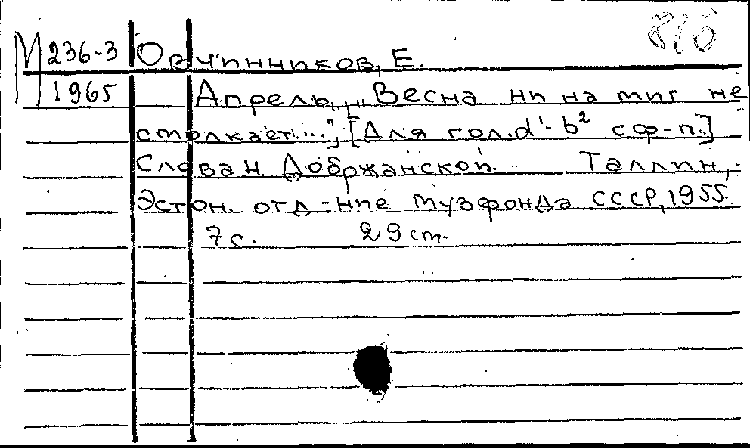 М 236-3 Овчинников, Е.
1965 Апрель. „Весна ни на миг не
смолкает...", [Для гол. d'-b² с ф-п.]
Слова Н. Добржанской. Таллин,
Эстон. отд-ние Музфонда СССР, 1955.
7 с. 29 cm.